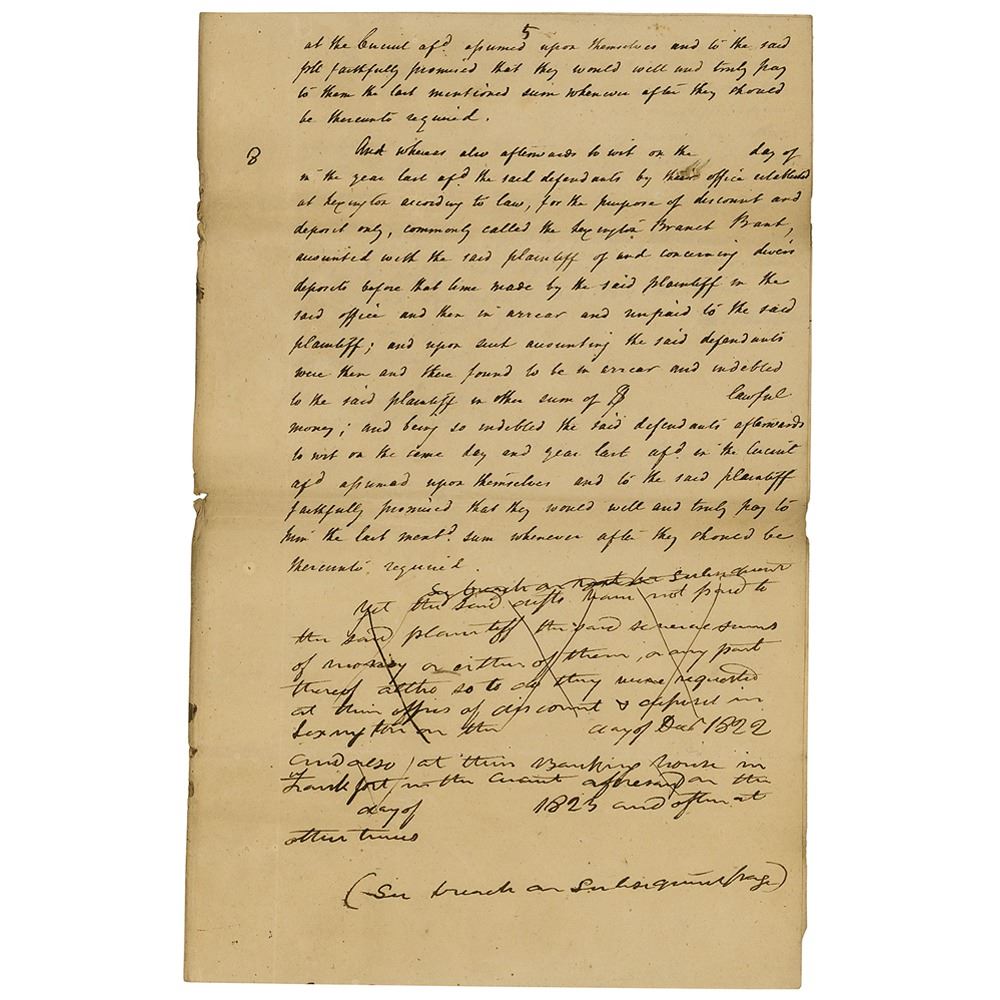 5
at the Circuit afd. assumed upon themselves and to the said
pltf faithfully promised that they would well and truly pay
to them the last mentioned sum whenever after they should
be thereunto required.
8
And whereas also afterwards to wit on the day of
in the year last afd. the said defendants by their office established
at Lexington according to law, for the purpose of discount and
deposit only, commonly called the Lexington Branch Bank,
accounted with the said plaintiff of and concerning divers
deposits before that time made by the said plaintiff in the
said office and then in arrear and unpaid to the said
plaintiff; and upon such accounting the said defendants
were then and there found to be in arrear and indebted
to the said plaintiff in other sum of $ lawful
money; and being so indebted the said defendants afterwards
to wit on the same day and year last afd. in the Circuit
afd. assumed upon themselves and to the said plaintiff
faithfully promised that they would well and truly pay to
him the last mentd. sum whenever after they should be
thereunto required.
See breach on subsequent
Yet the said defts have not paid to
the said plaintiff the said several sums
of money or either of them, or any part
thereof altho so to do they were requested
at their office of discount & deposit in
Lexington on the day of Decr 1822
and also at their Banking house in
Frankfort in the circuit aforesaid on the
day of 1823 and often at
other times
(See breach on subsequent page)